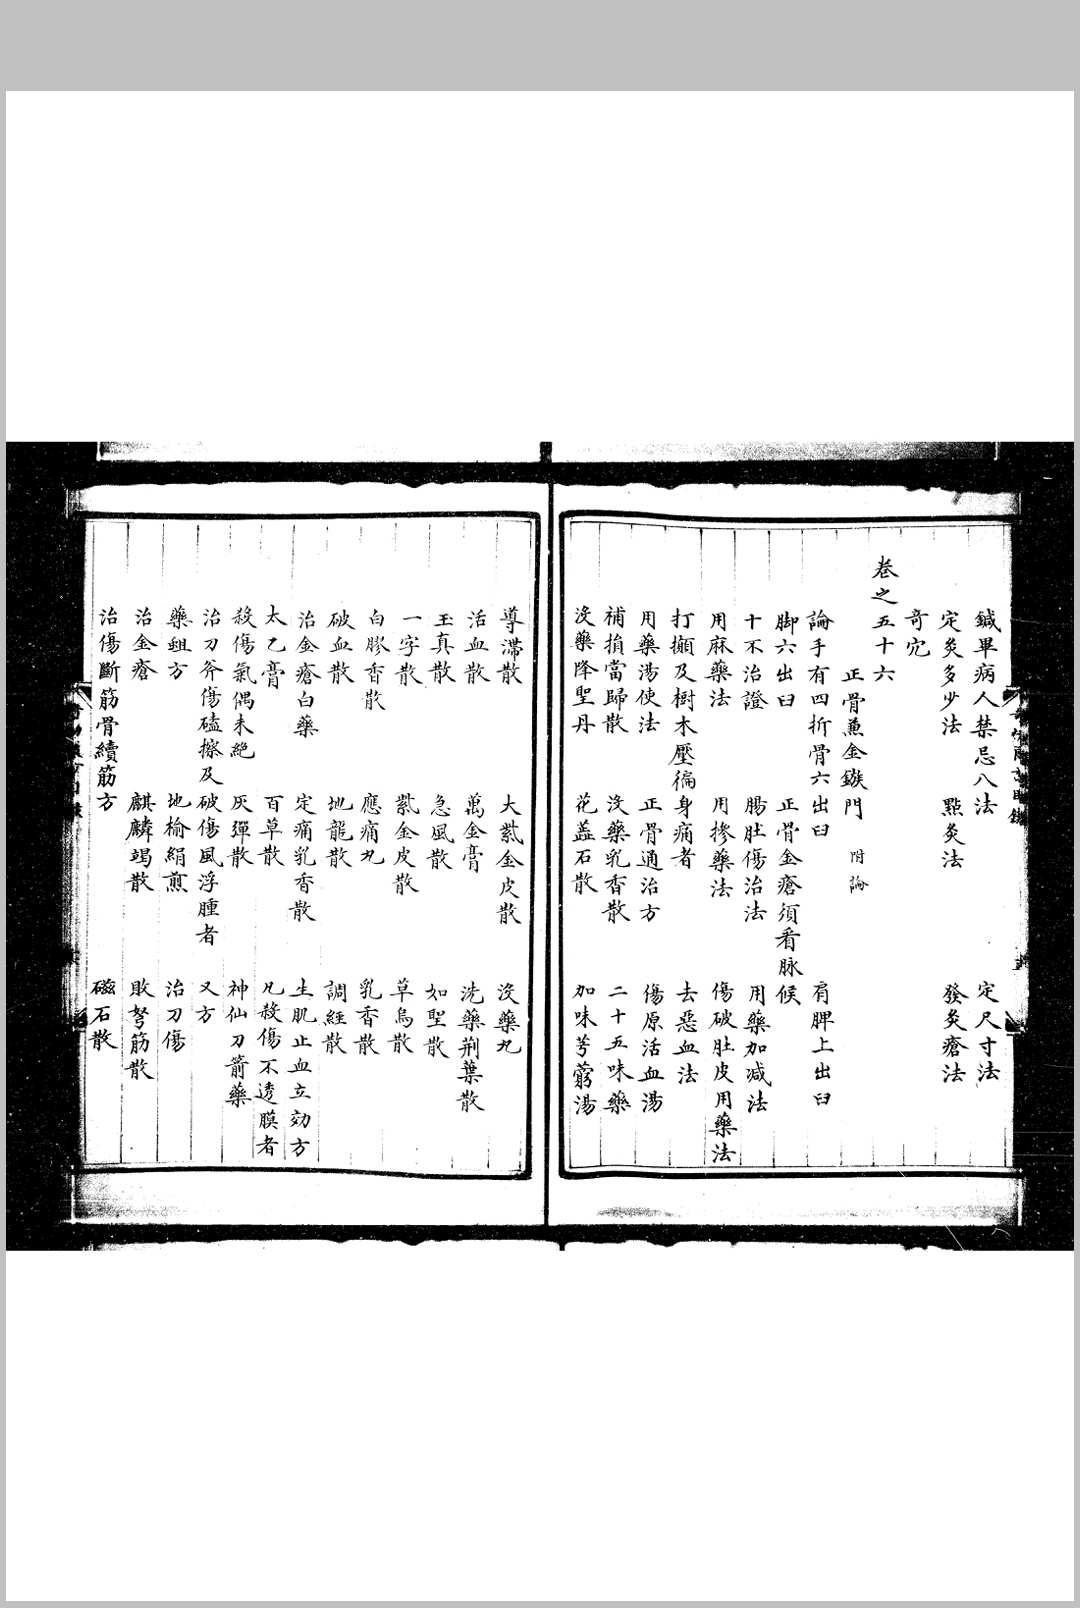 鍼畢病人禁忌八法 定尺寸法
定灸多少法 點灸法 發灸瘡法
奇穴
卷之五十六
正骨兼金鏃門 附論
論手有四折骨六出臼 肩胛上出臼
脚六出臼 正骨金瘡須看脉候
十不治證 腸肚傷治法 用藥加减法
用麻藥法 用摻藥法 傷破肚皮用藥法
打攧及樹木壓徧身痛者 去惡血法
用藥湯使法 正骨通治方 傷原活血湯
補損當歸散 沒藥乳香散 二十五味藥
沒藥降聖丹 花蓋石散 加味芎藭湯
導滯散 大紫金皮散 沒藥丸
活血散 萬金膏 洗藥荆葉散
玉真散 急風散 如聖散
一字散 紫金皮散 草烏散
白膠香散 應痛丸 乳香散
破血散 地龍散 調經散
治金瘡白藥 定痛乳香散 生肌止血立効方
太乙膏 百草散 凡殺傷不透膜者
殺傷氣偶未絶 灰彈散 神仙刀箭藥
治刀斧傷磕擦及破傷風浮腫者 又方
藥蛆方 地榆絹煎 治刀傷
治金瘡 麒麟竭散 敗弩筋散
治傷斷筋骨續筋方 磁石散